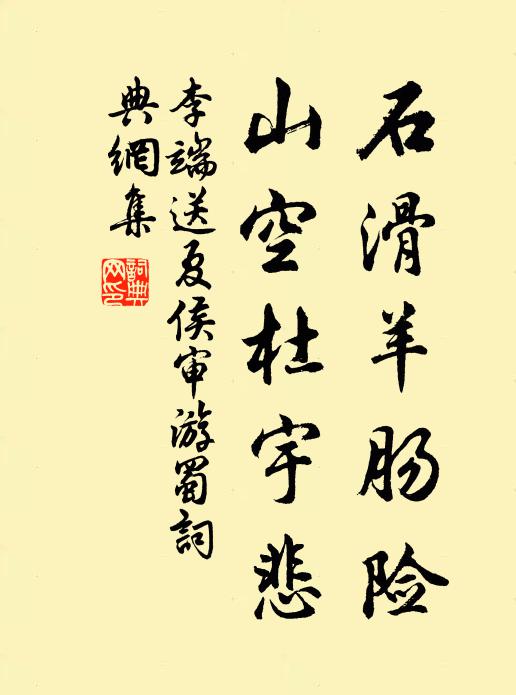 石滑羊肠险
山空杜宇悲
李端送夏侯审游蜀詞
典網集
詞典网印